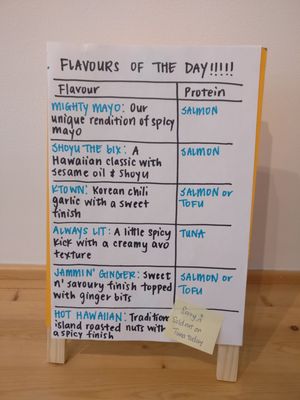 FLAVOURS OF THE DAY!!!!!
Flavour
Protein
MIGHTY MAYO: Our
unique rendition of spicy
mayo
SALMON
SHOYU THE BIX: A
Hawaiian classic with
sesame oil & Shoyu
SALMON
KTOWN: Korean chili
garlic with a sweet
finish
SALMON OR
TOFU
ALWAYS LIT: A little spicy
kick with a creamy avo
texture
TUNA
JAMMIN' GINGER: Sweet
n' savoury finish topped
with ginger bits
SALMON OR
TOFU
HOT HAWAIIAN: Tradition
island roasted nuts with
a spicy finish
Sorry
Sold out on
Tuna today